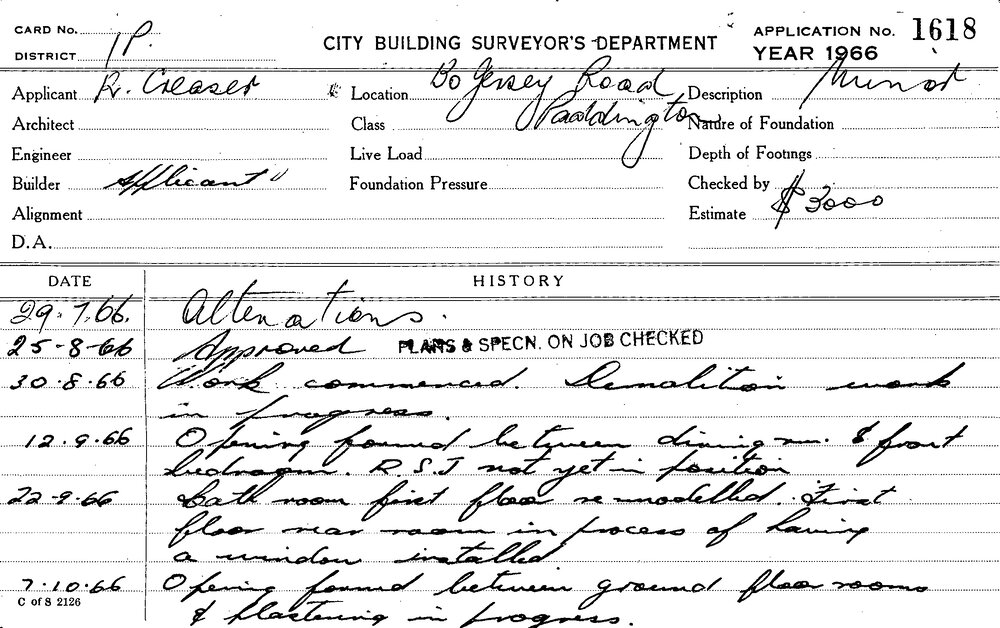 CARD No.
DISTRICT 1P.
CITY BUILDING SURVEYOR'S DEPARTMENT
APPLICATION No. 1618
YEAR 1966
Applicant R. Creaser
Location 80 Jersey Road
Paddington
Description Minor
Architect
Class
Nature of Foundation
Engineer
Live Load
Depth of Footings
Builder Applicant "
Foundation Pressure
Checked by
Alignment
Estimate $ 3000
D.A.
DATE HISTORY
29.7.66. Alterations.
25-8-66 Approved PLANS & SPECN. ON JOB CHECKED
30.8.66 Work commenced. Demolition work
in progress.
12.9.66 Opening formed between dining rm. & front
bedroom. R.S.J not yet in position
22-9-66 Bath room first floor remodelled. First
floor rear room in process of having
a window installed
7.10.66 Opening formed between ground floor rooms
C of S 2126
& plastering in progress.